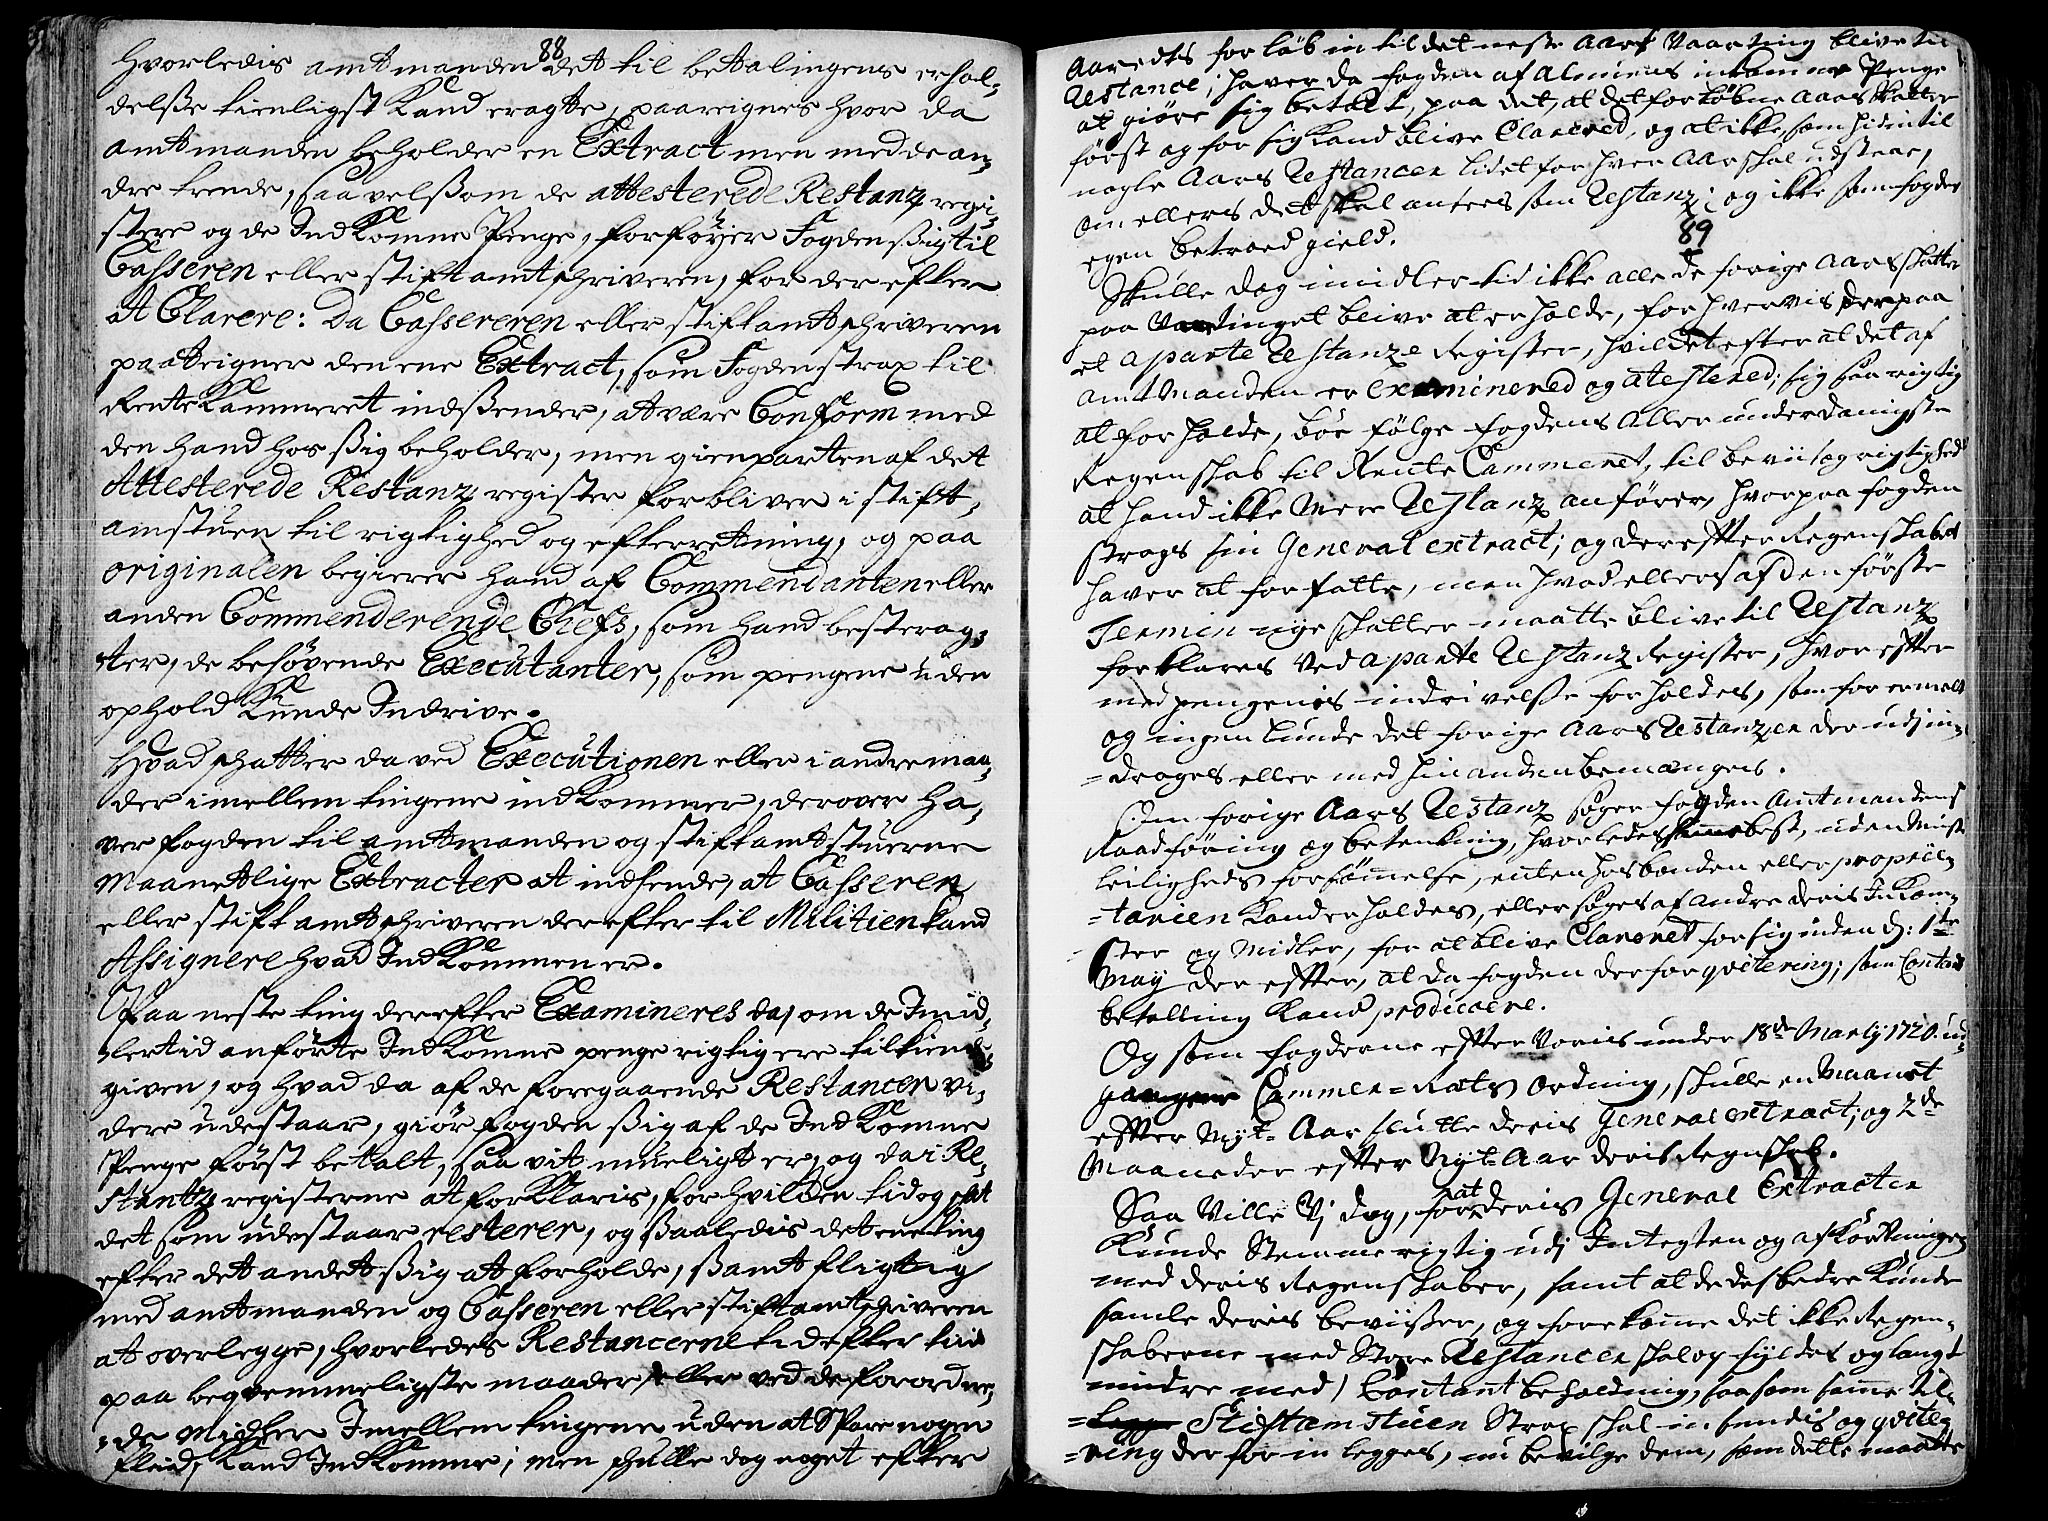 88
hvorledis amtmanden det til betalingens erhol-
delsse tienligst Kand eragtte, paareignes hvor da
amtmanden beholder en Extract men med de an-
dre tvende, saavelssom de attesterede Restantz regi-
stere og de IndKomne Penge, forføyer Fogden ssig til
Casseren eller stiftamtschriveren, for der efter
at Clarere: Da Cassereren eller stiftamtschriveren
paateigner den ene Extract, som Fogden strax til
RenteKammeret indssender, at være Conform med
den hand hos ssig beholder, men gienparten af det
Attesterede Restantz register forbliver i stift-
amstuen til rigtighed og efterretning, og paa
originalen begierer hand af Commendanten eller
anden Commenderende Chefs, som hand best erag-
ter, de behøvende Executanter, som pengene uden
ophold Kunde Indrive.
Hvad schatter da ved Executionen eller i andre maa-
der imellem tingene indkommer, derover ha-
ver fogden til amtmanden og stiftamtstuerne
Maanetlige Extracter at indsende, at Casseren
eller stiftamtschriveren derefter til Militien Kand
Assignere hvad IndKommen er.
Paa neste ting derefter Examineres da, om de Imid-
lertid anførte IndKomne penge rigtig ere tilkiende
given, og hvad da af de foregaaende Restancer vi-
dere udestaar, giør fogden ssig af de IndKomne
Penge først betalt, saa vit mueligt er, og da i Re-
stantz registerne at forKlaris, for hvilken tid og schat
det som udestaar resterer, og ssaaledis det ene ting
efter det andet ssig at forholde, ssamt fligtig
med amtmanden og Casseren eller stiftamtschriveren
at overlegge, hvorledes Restancerne tid efter tiid
paa beqvemmeligste maader, eller ved de forordne-
de Midler Imellem tingene uden at Spare nogen
fliid, Kand IndKomme; men schulle dog noget efter
Aaredts forløb in til det neste Aars Vaarting blive til
Restance, haver da fogden af Almuens inkomne Penge
at giøre sig betalt, paa det, at det forløbne Aars skatter
først og for sig kand blive Clarered, og at ikke, som hidintil
nogle Aars Restancer tidet for hver Aar skal udstaae,
om ellers det skal ansees som Restanz, og ikke som fogdens
egen betroed gield.
89
Skulle dog imidlertid ikke alle de forige Aars skatter
paa Vaartinget blive at erholde, forhverves derpaa
et aparte Restanze Register, hvilcket efter at det af
amtmanden er examinered og atestered, sig saa rigtig
at forholde, bør følge fogdens allerunderdanigste
Regenskab til Rente Cammeret, til beviis og rigtighed
at hand ikke mere Restanz anfører, hvorpaa fogden
strags sin General extract, og derefter Regenskabet
haver at forfatte, men hvad ellers af den første
Termin nye skatter maatte blive til Restanz
forklares ved aparte Restanz Register, hvorefter
med pengenis inddrivelse forholdes, som formelt
og ingenlunde det forige Aars Restanzer der udj in-
-drages eller med hinanden bemænges.
Om forige Aars Restanz søger fogden Amtmandens
Raadføring og betenkning, hvorledes samme best, uden tiidt
leiligheds forsømmelse, enten hos bonden eller proprie-
-tarien kand erholdes, eller søges af andre deris Inkom-
ster og midler, for at blive Clareret for sig inden d: 1te
May der efter, at da fogden derfor qvitering, som Contant
betalling kand producere.
Og som fogderne efter Voris under 18de Marty 1720. ud-
gangne Cammer-Rets Ordning, skulle en Maanet
efter Nyt-Aar slutte deris General extract, og 2de
Maaneder efter Nyt-Aar deris Regnskab.
Saa Ville Vj dog, for at deris General Extracter
Kunde Stemme rigtig udj Integten og afkortningen
med deris Regenskaber, samt at de des bedre Kunde
samle deris beviisser, og forekomme det ikke Regen-
skaberne med Store Restancer skal opfyldes og langt
mindre med Contant beholdning, saasom samme til
Stiftamtstuen Strax skal insendis og qvite-
-ring derfor inlegges, nu bevilge dem, som dette maatte